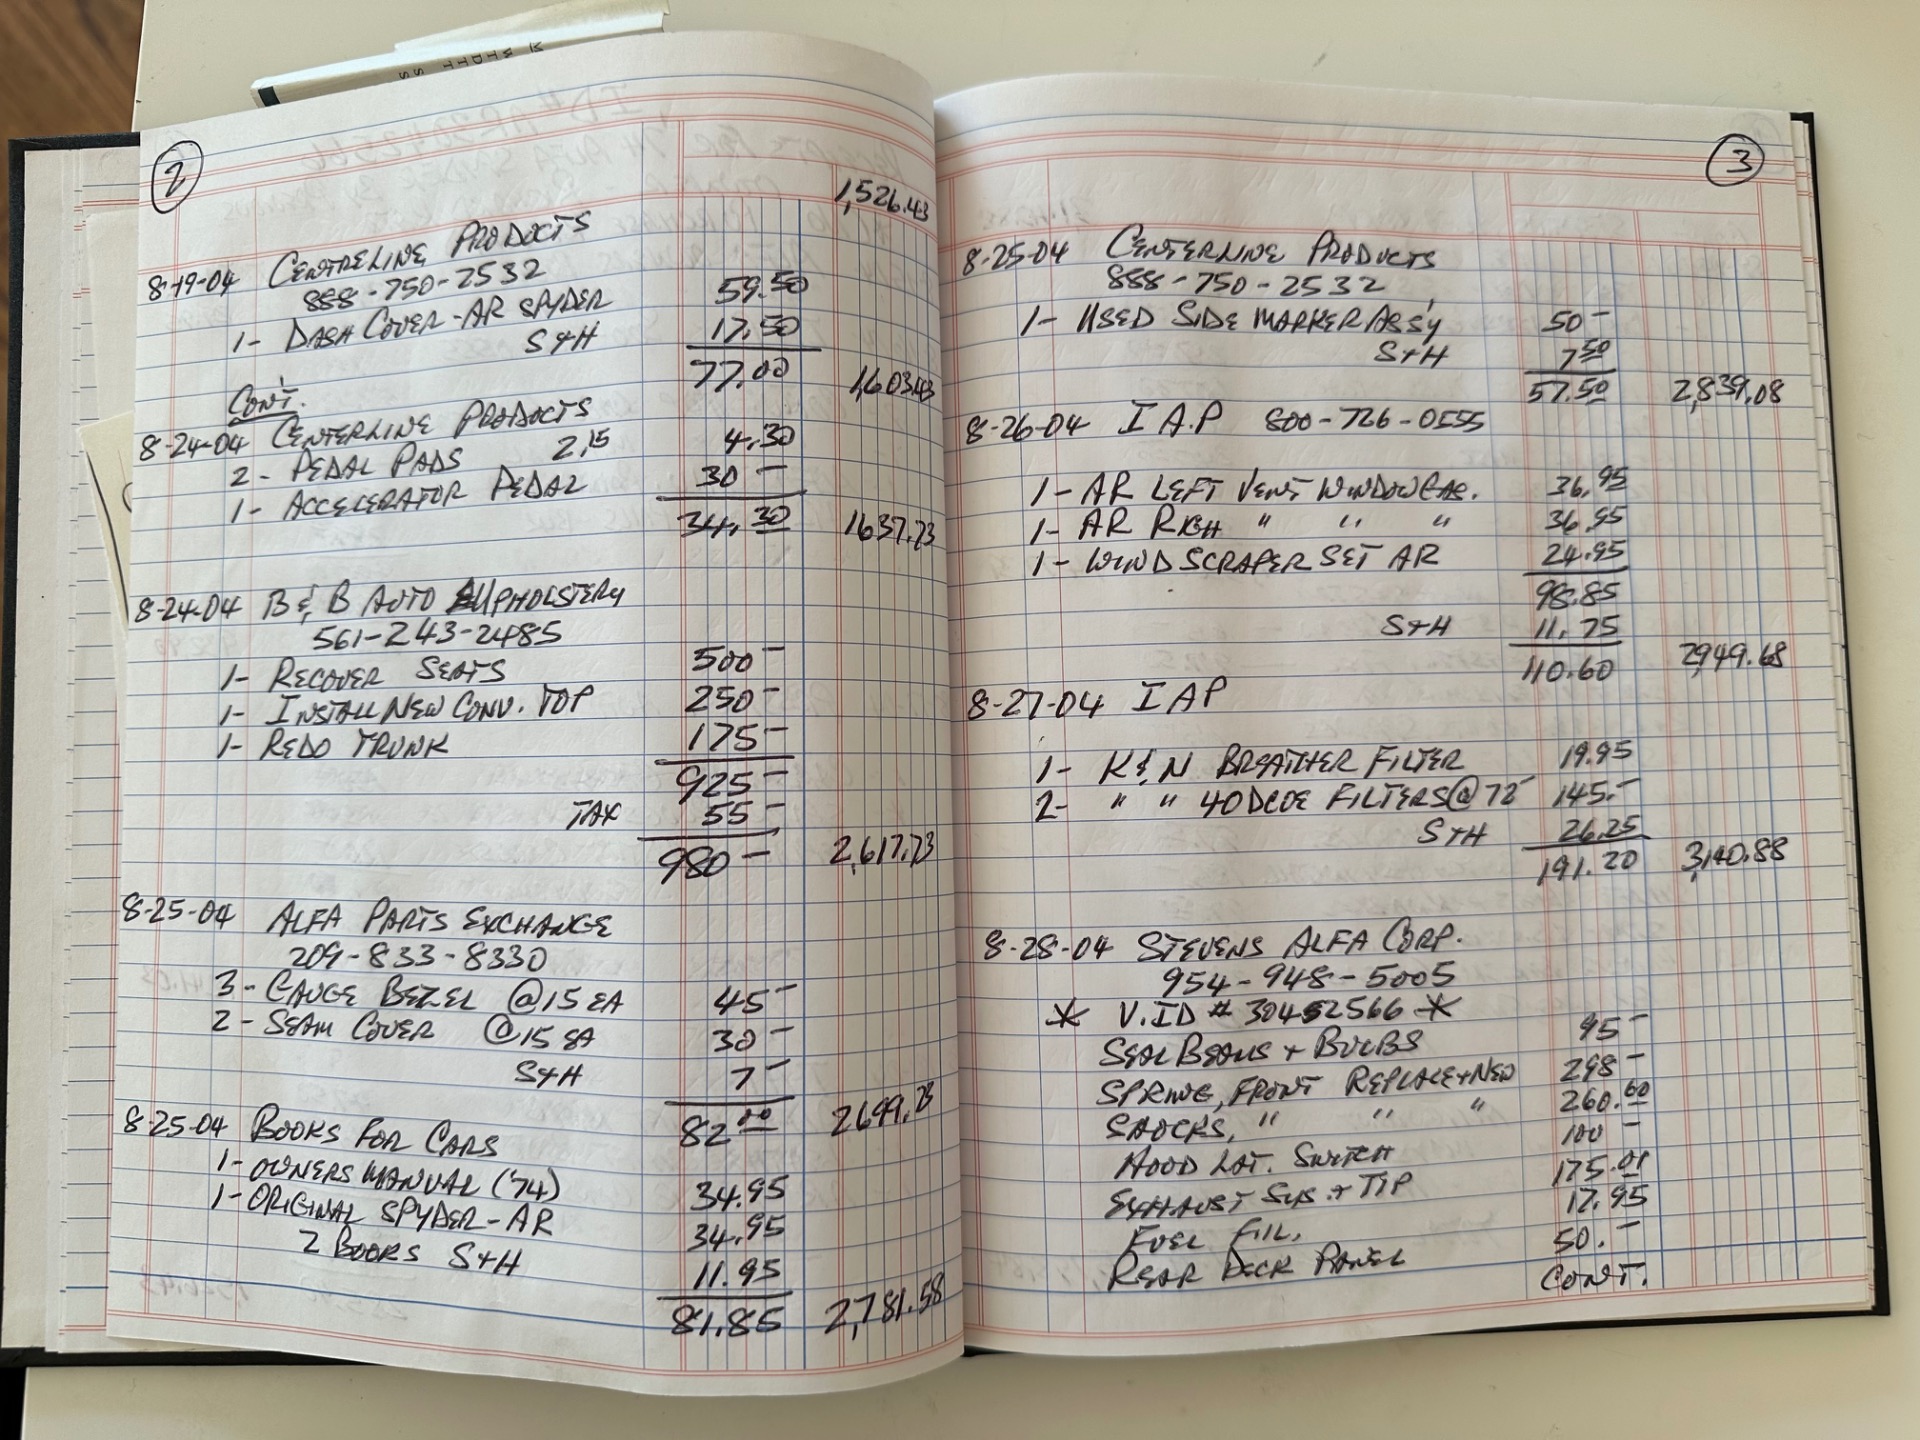 2
1,526.43
8-19-04 CENTRELINE PRODUCTS
888-750-2532
1- DASH COVER-AR SPYDER 59.50
S&H 17.50
77.00 1,603.43
CONT.
8-24-04 CENTERLINE PRODUCTS
2- PEDAL PADS 2.15 4.30
1- ACCELERATOR PEDAL 30-
34.30 1637.73
8-24-04 B&B AUTO UPHOLSTERY
561-243-2485
1- RECOVER SEATS 500-
1- INSTALL NEW CONV. TOP 250-
1- REDO TRUNK 175-
925-
TAX 55-
980- 2,617.73
8-25-04 ALFA PARTS EXCHANGE
209-833-8330
3- GAUGE BEZEL @15 EA 45-
2- SEAM COVER @15 EA 30-
S&H 7-
82.00 2699.73
8-25-04 BOOKS FOR CARS
1- OWNERS MANUAL (74) 34.95
1- ORIGINAL SPYDER-AR 34.95
2 BOOKS S+H 11.95
81.85 2,781.58
3
8-25-04 CENTERLINE PRODUCTS
888-750-2532
1- USED SIDE MARKER ASS'Y 50-
S+H 7.50
57.50 2,839.08
8-26-04 I A.P 800-726-0555
1- AR LEFT VENT WINDOW 36.95
1- AR RIGH " " " 36.95
1- WIND SCRAPER SET AR 24.95
98.85
S+H 11.75
110.60 2949.68
8-27-04 I A P
1- K&N BREATHER FILTER 19.95
2- " " 40DCOE FILTERS @ 72- 145.-
S+H 26.25
191.20 3,140.88
8-28-04 STEVENS ALFA CORP.
954-948-5005
* V.ID # *
SEAL BEAMS + BULBS 95-
SPRING, FRONT REPLACE+NEW 298-
SHOCKS, " " " 260.60
HOOD LAT. SWITCH 100-
EXHAUST SYS. + TIP 175.01
FUEL FIL. 17.95
REAR DECK PANEL 50.-
CONT.